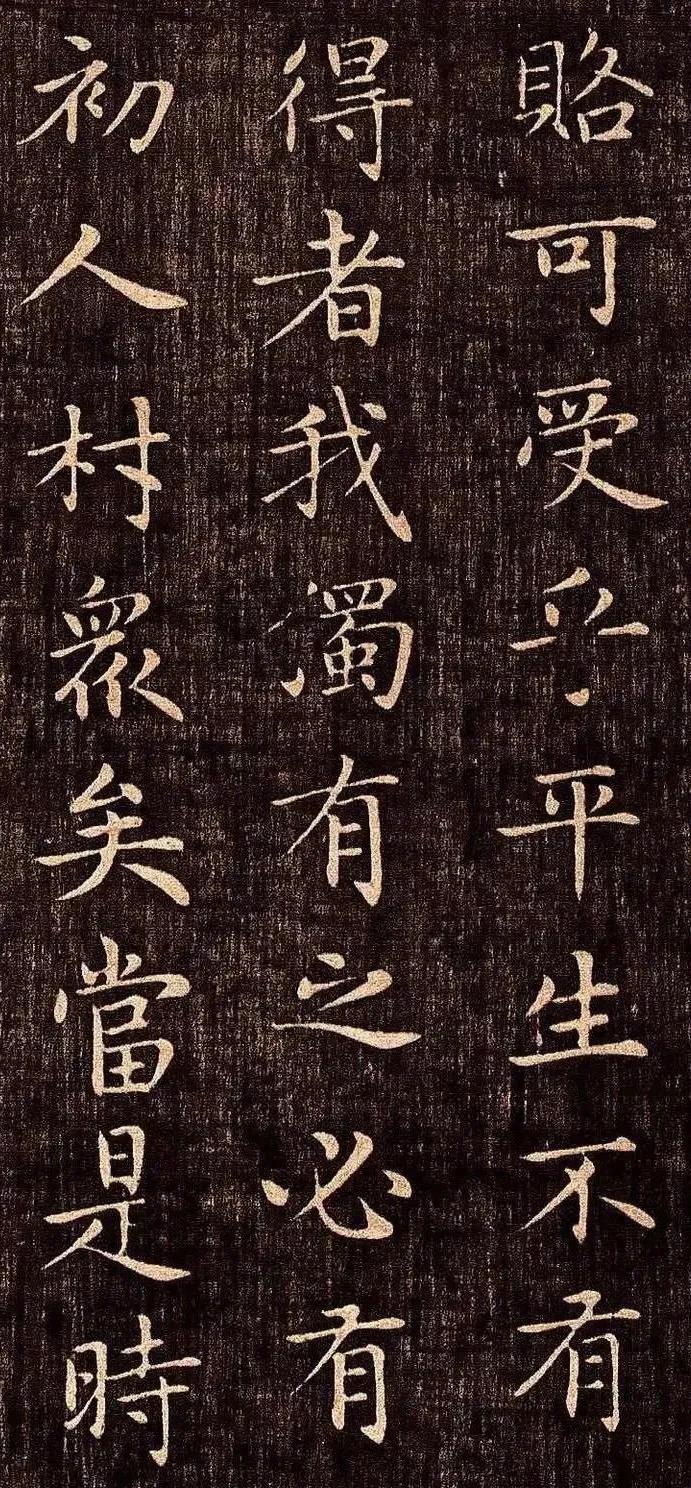 賂可受乎平生不有
得者我濁有之必有
初人村衆矣當是時